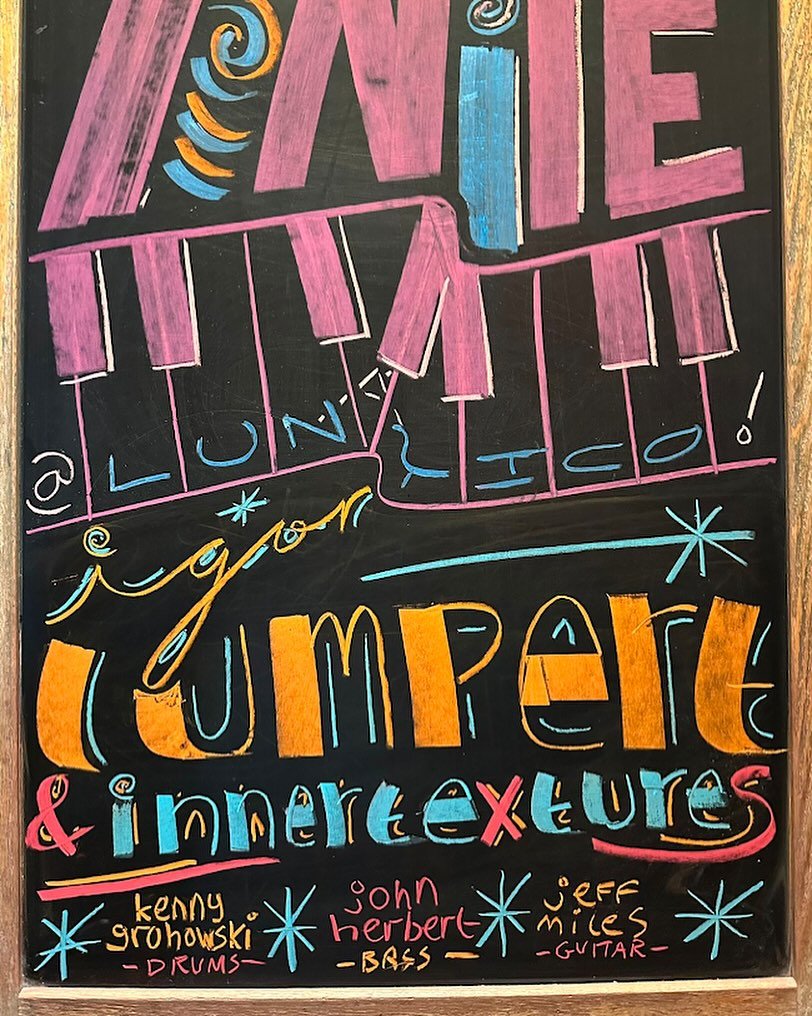 TONiTE
@LUNATICO!
igor
lumpert
& innertextures
kenny grohowski
-DRUMS-
john herbert
-BASS-
jeff miles
-GUITAR-